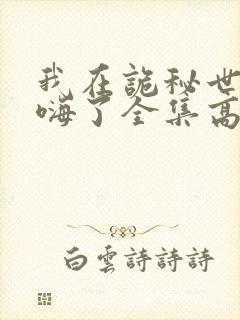 我在詭秘世
嗨了全集高
白雲詩詩詩